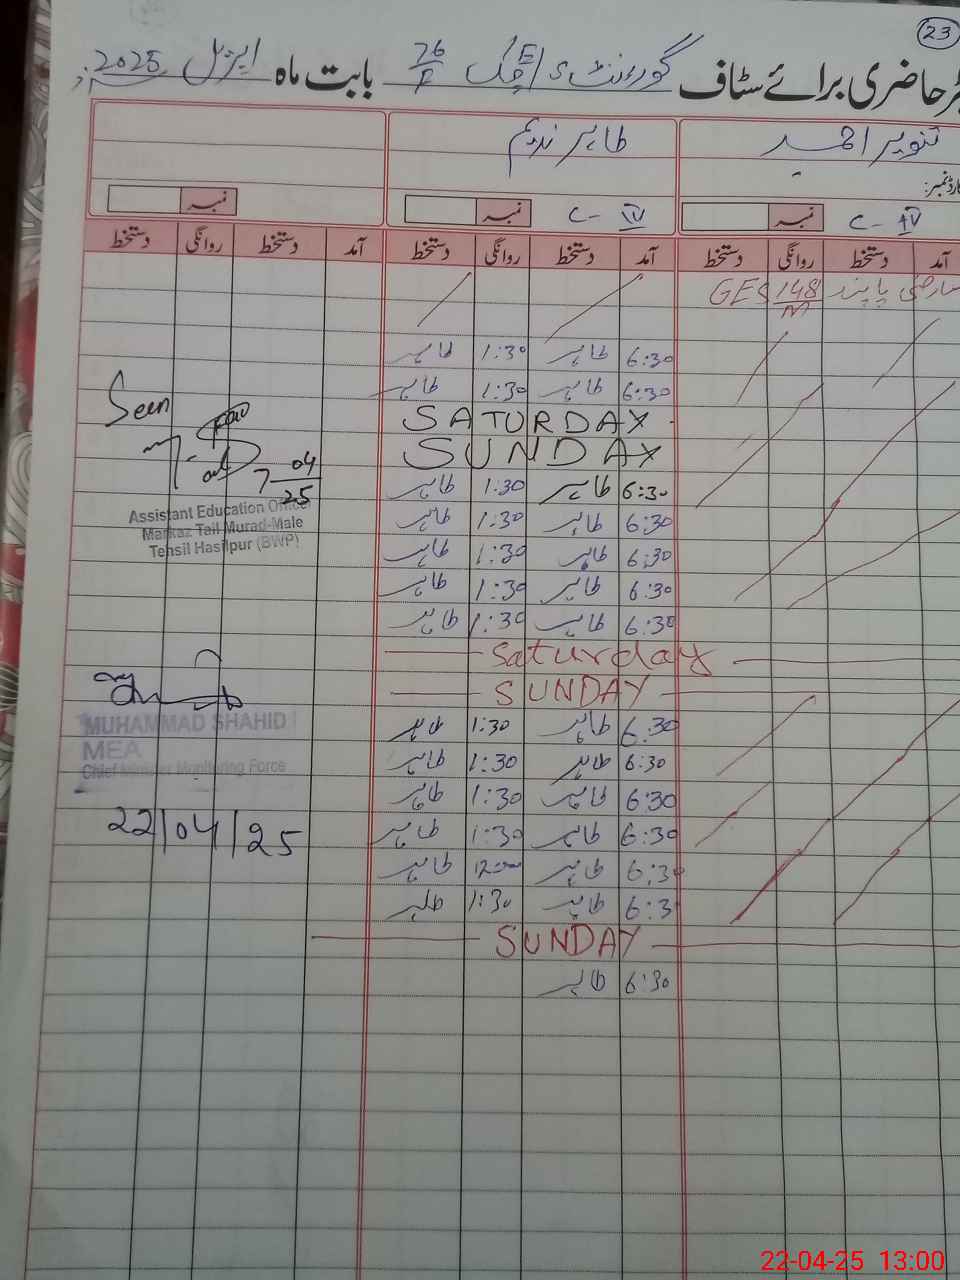 23
رجسٹر حاضری برائے سٹاف گورنمنٹ E/S چک 26/F بابت ماہ اپریل 2025
تنویر احمد طاہر ندیم
کارڈ نمبر:
C-IV نمبر C-IV نمبر نمبر
آمد دستخط روانگی دستخط آمد دستخط روانگی دستخط آمد دستخط روانگی دستخط
عارضی پابند GES 148/M
6:30 طاہر 1:30 طاہر
6:30 طاہر 1:30 طاہر
SATURDAY
SUNDAY
6:30 طاہر 1:30 طاہر
6:30 طاہر 1:30 طاہر
6:30 طاہر 1:30 طاہر
6:30 طاہر 1:30 طاہر
6:30 طاہر 1:30 طاہر
Saturday
SUNDAY
6:30 طاہر 1:30 طاہر
6:30 طاہر 1:30 طاہر
6:30 طاہر 1:30 طاہر
6:30 طاہر 1:30 طاہر
6:30 طاہر 12:00 طاہر
6:3 طاہر 1:30 طاہر
SUNDAY
6:30 طاہر
Seen
7 04
25
Assistant Education Officer
Markaz Tail Murad-Male
Tehsil Hasilpur (BWP)
MUHAMMAD SHAHID
MEA
Chief Minister Monitoring Force
22/04/25
22-04-25 13:00